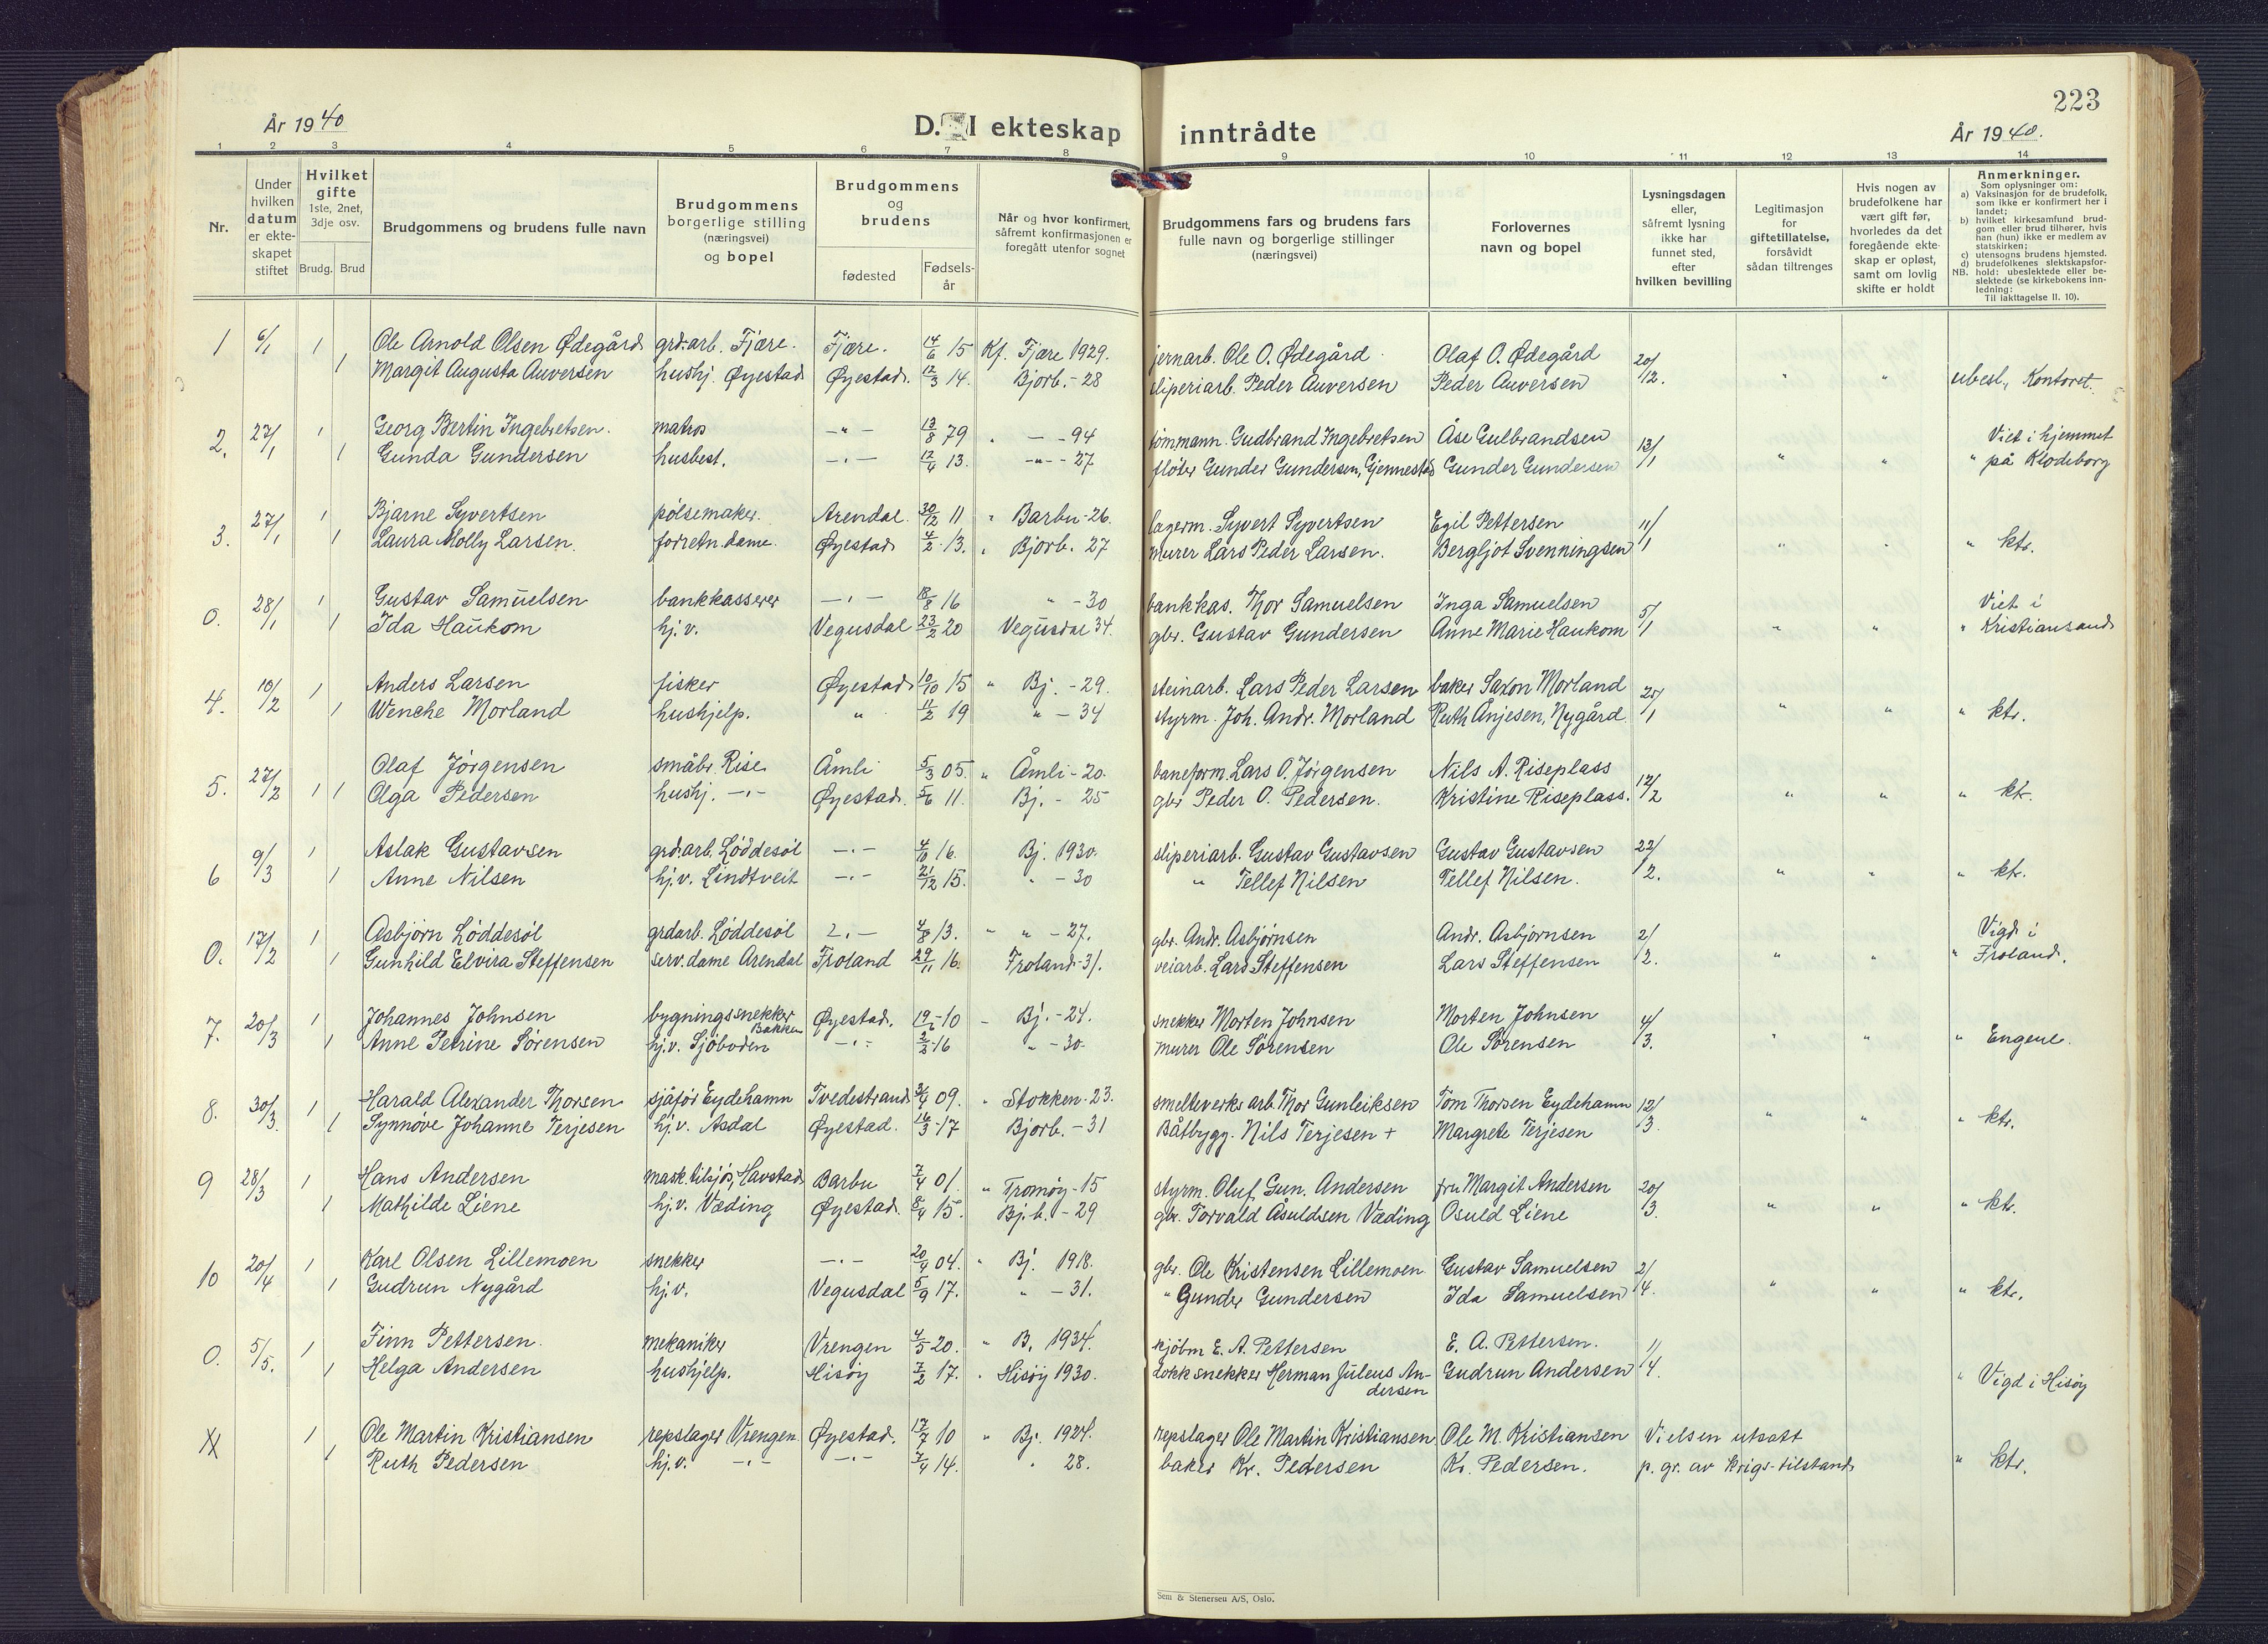 223
År 1940
D. I ekteskap inntrådte
År 1940.
1 2 3 4 5 6 7 8 9 10 11 12 13 14
Nr.
Under hvilken datum er ekte- skapet stiftet
Hvilket gifte 1ste, 2net, 3dje osv.
Brudg. Brud
Brudgommens og brudens fulle navn
Brudgommens borgerlige stilling (næringsvei) og bopel
Brudgommens og brudens
fødested
Fødsels- år
Når og hvor konfirmert, såfremt konfirmasjonen er foregått utenfor sognet
Brudgommens fars og brudens fars fulle navn og borgerlige stillinger (næringsvei)
Forlovernes navn og bopel
Lysningsdagen eller, såfremt lysning ikke har funnet sted, efter hvilken bevilling
Legitimasjon for giftetillatelse, forsåvidt sådan tiltrenges
Hvis nogen av brudefolkene har vært gift før, hvorledes da det foregående ekte- skap er opløst, samt om lovlig skifte er holdt
Anmerkninger.
Som oplysninger om:
a) Vaksinasjon for de brudefolk, som ikke er konfirmert her i landet;
b) hvilket kirkesamfund brud- gom eller brud tilhører, hvis han (hun) ikke er medlem av statskirken;
c) utensogns brudens hjemsted.
d) brudefolkenes slektskapsfor-
NB. hold: ubeslektede eller be- slektede (se kirkebokens inn- ledning:
Til iakttagelse II. 10).
1 6/1 1 Ole Arnold Olsen Ødegård grd.arb. Fjære. Fjære. 14/6 15 Kf. Fjære 1929. jernarb. Ole O. Ødegård Olaf O. Ødegård 20/
1 Margit Augusta Auversen hushj. Øyestad Øyestad. 12/3 14. Bjorb. - 28 sliperiarb. Peder Auversen Peder Auversen 12. " " ubesl., Kontoret.
2. 27/1 1 Georg Bertin Ingebretsen. matros -"- 13/8 79 " - - 94 tømmann. Gudbrand Ingebretsen Åse Gulbrandsen 13/ Viet i hjemmet
1 Gunda Gundersen husbest. -"- 12/4 13. -"- - 27 fløter Gunder Gundersen, Gjennestad Gunder Gundersen 1 " " " på Klodeborg
3. 27/1 1 Bjarne Syvertsen pølsemaker. Arendal. 30/12 11 " Barbu - 26. lagerm. Syvert Syvertsen Egil Pettersen 11/
1 Laura Molly Larsen. forretn.dame. Øyestad 4/2 13. " Bjorb. 27 murer Lars Peder Larsen. Bergljot Svenningsen 1 " " " ktr.
0. 28/1 1 Gustav Samuelsen bankkasserer -"- 18/8 16 " - 30 bankkas. Thor Samuelsen Inga Samuelsen 5/ Viet i
1 Ida Haukom hj.v. Vegusdal 23/2 20 Vegusdal 34. gbr. Gustav Gundersen Anne Marie Haukom 1 " " " Kristiansand
4. 10/2 1 Anders Larsen fisker Øyestad 10/10 15 " Bj. - 29. steinarb. Lars Peder Larsen baker Saxon Morland 25/
1 Wenche Morland hushjelp. " 11/2 19 " - 34 styrm. Joh. Andr. Morland Ruth Anjesen, Nygård. 1 " " " ktr.
5. 27/2 1 Olaf Jørgensen småbr. Rise Åmli 5/3 05. " Åmli - 20. baneform. Lars O. Jørgensen Nils A. Riseplass
1 Olga Pedersen hushj. -"- Øyestad. 5/6 11. Bj. - 25 gbr Peder O. Pedersen. Kristine Riseplass. 12/2 " " " ktr.
6 9/3 1 Aslak Gustavsen grd.arb. Løddesøl -"- 4/10 16. Bj. 1930. sliperiarb. Gustav Gustavsen Gustav Gustavsen 22/
1 Anne Nilsen hj.v. Lindtveit -"- 21/12 15. " - 30 " Tellef Nilsen Tellef Nilsen. 2. " " " ktr.
0. 17/2 1 Asbjørn Løddesøl grdarb. Løddesøl -"- 4/8 13. " " - 27. gbr. Andr. Asbjørnsen Andr. Asbjørnsen 2/ Vigd i
1 Gunhild Elvira Steffensen serv.dame Arendal Froland 29/11 16. Froland - 31. veiarb. Lars Steffensen Lars Steffensen 2. " " " Froland.
7. 20/3 1 Johannes Johnsen bygningssnekker Bakken Øyestad. 19/2 10 - Bj. - 24. snekker Morten Johnsen Morten Johnsen 4/
1 Anne Petrine Sørensen hj.v. Sjøboden -"- 2/2 16 " - 30. murer Ole Sørensen Ole Sørensen 3. " " " Engene.
8. 30/3. 1 Harald Alexander Thorsen sjåfør Eydehamn Tvedestrand 3/4 09. " Stokken - 23. smelteverks arb. Thor Gunleiksen Tom Thorsen Eydehamn 12/
1 Synnøve Johanne Terjesen hj.v. Asdal Øyestad. 16/3 17 Bjorb. - 31 Båtbygg. Nils Terjesen + Margrete Terjesen 3. " " " ktr.
9 28/3 1 Hans Andersen mask.tilsjø, Havstad Barbu 7/4 01. " Tromøy - 15 styrm. Oluf Gun. Andersen fru Margit Andersen 20/
1 Mathilde Liene hj.v. Væding Øyestad. 8/4 15. Bj.b. - 29 gbr. Torvald Åsuldsen Væding Osuld Liene 3. " " " ktr.
10 20/4 1 Karl Olsen Lillemoen snekker -"- 20/9 04. " Bj. 1918. gbr. Ole Kristensen Lillemoen Gustav Samuelsen 2/
1 Gudrun Nygård hj.v. Vegusdal 5/9 17. " - 31. " Gunder Gundersen Ida Samuelsen 4. " " " ktr.
0. 5/5. 1 Finn Pettersen. mekaniker Vrengen 4/5 20. " B. 1934. kjøbm E. A. Pettersen E. A. Pettersen. 1/
1 Helga Andersen hushjelp. Hisøy 7/2 17. " Hisøy 1930. dokksnekker Herman Julius An- dersen Gudrun Andersen 4. " Vigd i Hisøy
X 1 Ole Martin Kristiansen repslager Vrengen Øyestad. 17/7 10 " Bj. 1924. repslager Ole Martin Kristiansen Ole M. Kristiansen Vielsen utsatt
1 Ruth Pedersen hj.v. -"- -"- 7/4 14. " 28. baker Kr. Pedersen Kr. Pedersen. p. gr. av krigs-tilstand " ktr.
Sem & Stenersen A/S, Oslo.